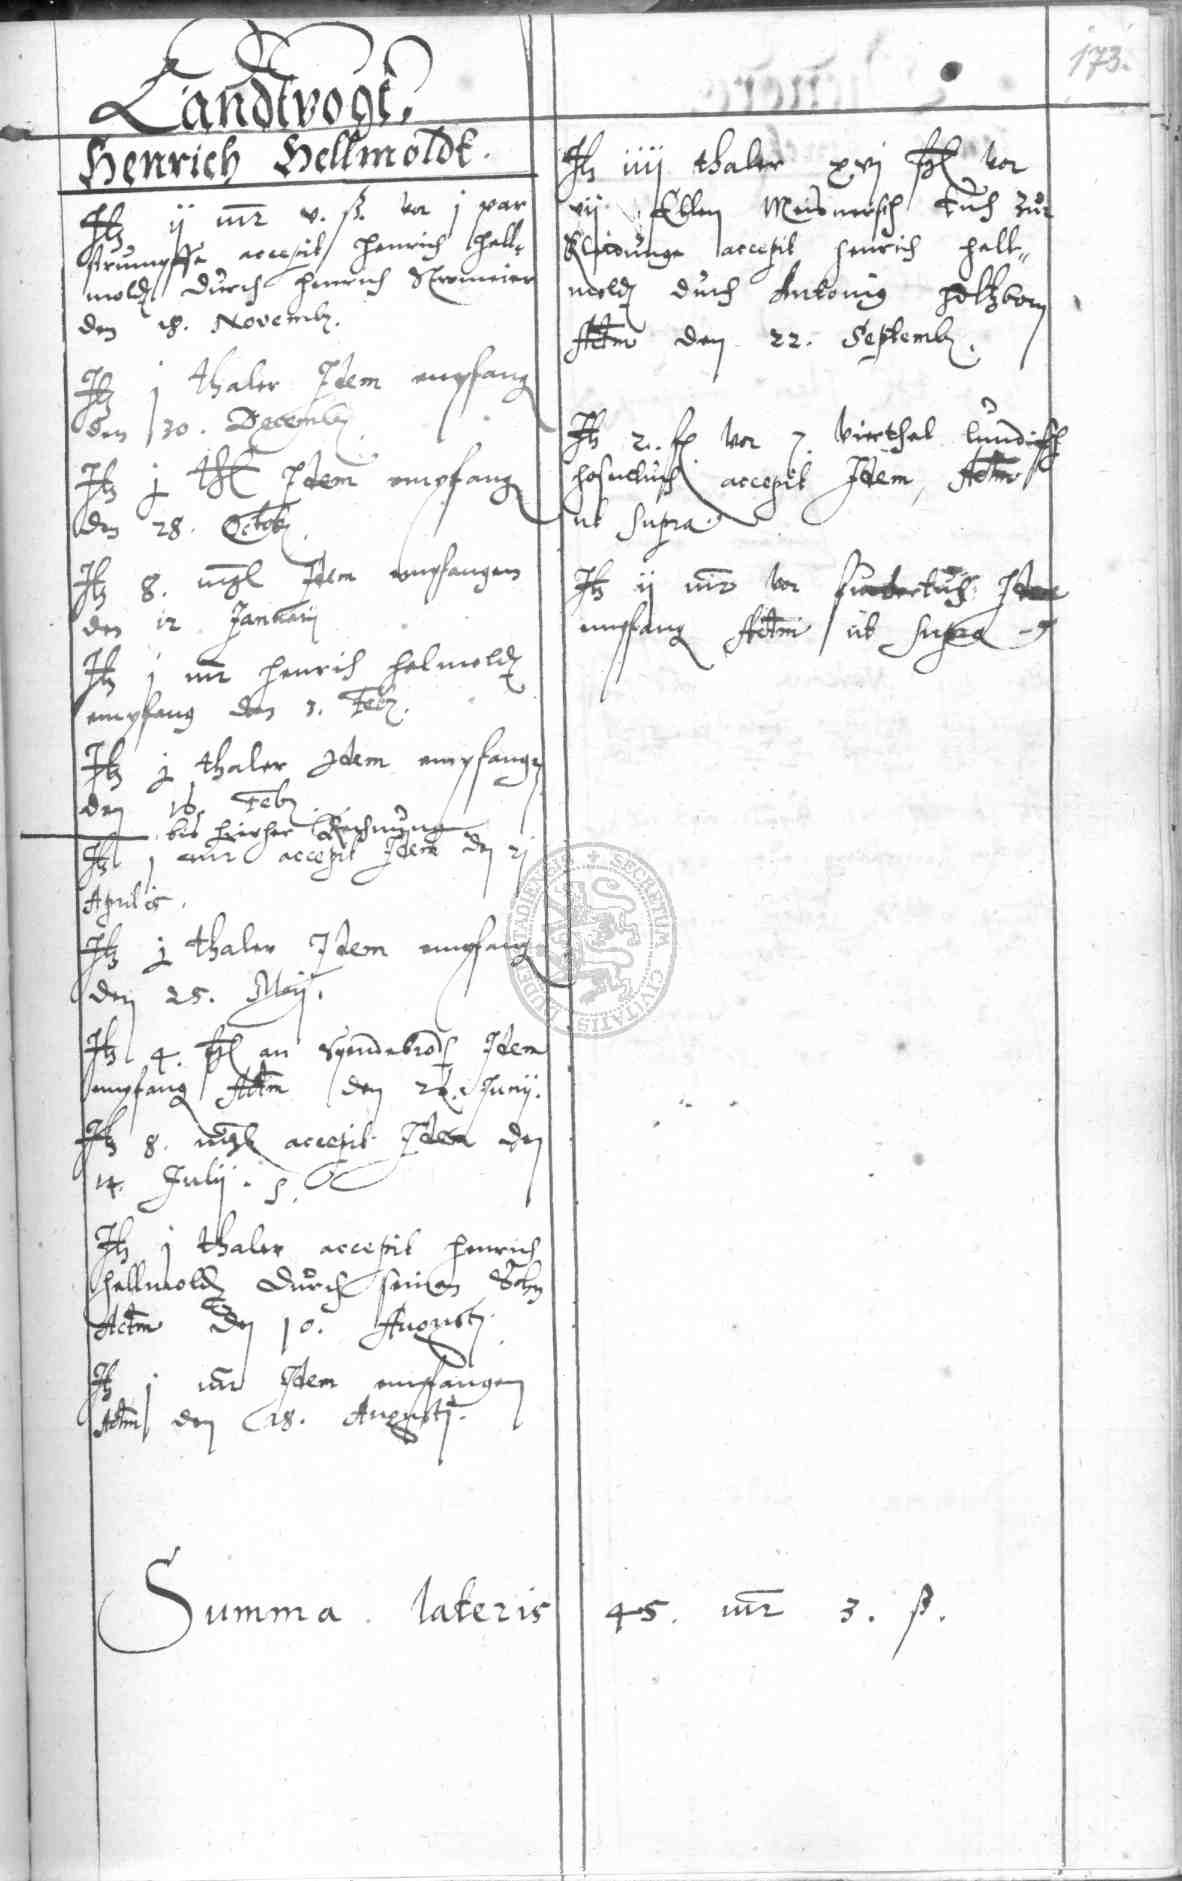 173.
Landtvogt.
Henrich Hellmoldt.
It. ij mr v. ß. vor j par
strumpffe accepit Henrich Hell-
moldt durch Henrich
den 18. Novemb.
It. j thaler Idem empfang
den 30. Decemb.
It. j thl Idem empfang
den 28. Octob.
It. 8. mgl Idem empfangen
den 12 Januarij
It. j mr Henrich Helmoldt
empfang den 3. Feb.
It. j thaler Idem empfang
den 16. Feb.
bis hierher Rechnung
It. j mr accepit Idem den 21
Aprilis.
It. j thaler Idem empfang
den 25. Maij.
It. 4. ßl an Spendebrodt Idem
empfang Actm den Junij.
It. 8. mgl accepit Idem den
14. Julij.
It. j thaler accepit Henrich
Hellmoldt durch seinen Sohn
Actm den 10. Augusti.
It. j mr Idem empfangen
Actm den 18. Augusti.
It. iiij thaler xvj ßl vor
vij Ellen Meisnersch tuch zur
Kleidunge accepit Henrich Hell-
moldt durch Antonius Holtzborn
Actm den 22. Septemb.
It. 2. fl vor 7 vierthel Lundisch
hosentuch accepit Idem, Actm
ut supra.
It. ij mr vor futtertuch Idem
empfang Actm ut supra
SECRETUM CIVITATIS
Summa lateris 45. mr 3. ß.